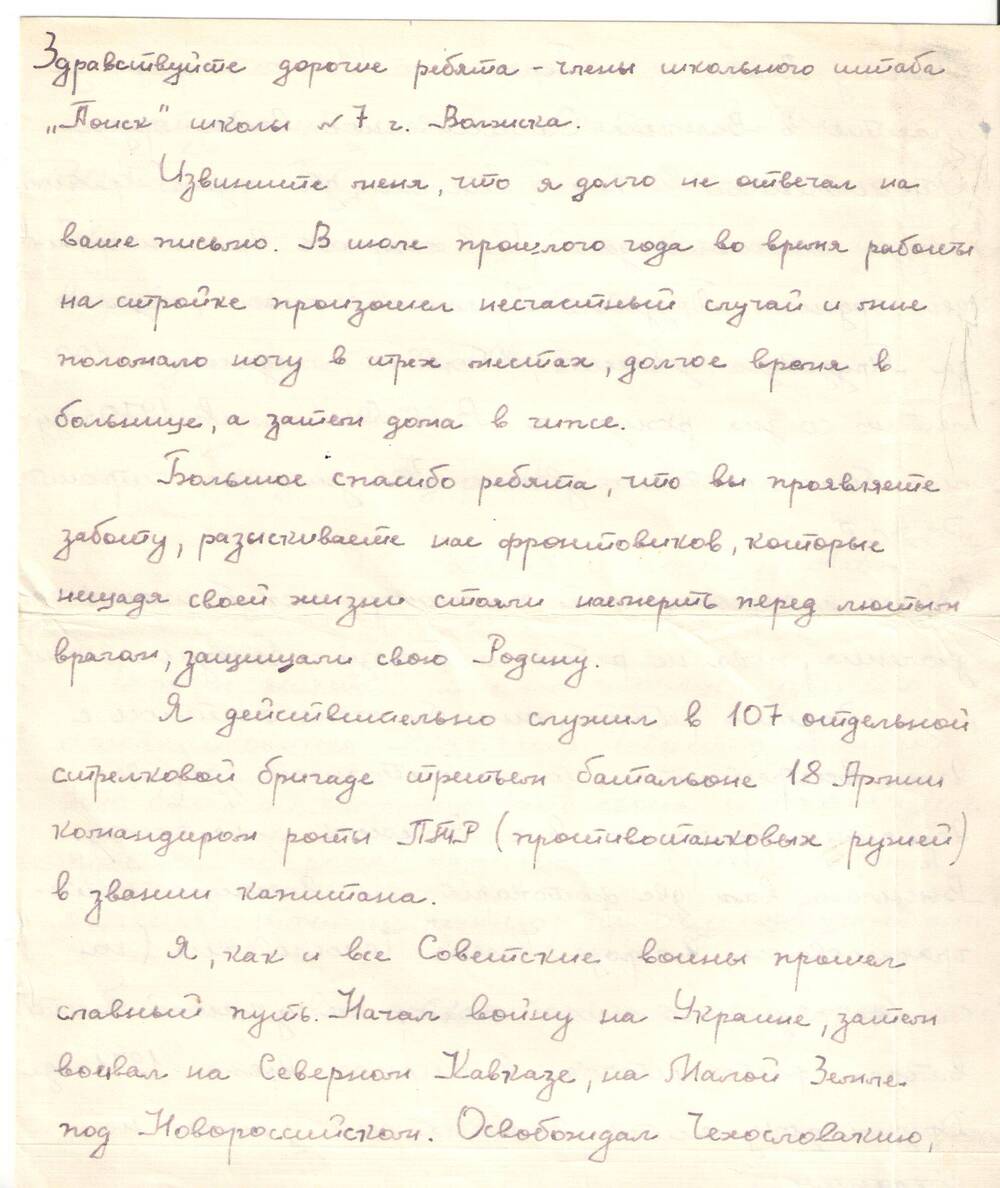 Здравствуйте дорогие ребята - члены школьного штаба
„Поиск" школы №7 г. Волжска.
Извините меня, что я долго не отвечал на
ваше письмо. В июле прошлого года во время работы
на стройке произошел несчастный случай и мне
поломало ногу в трех местах, долгое время в
больнице, а затем дома в гипсе.
Большое спасибо ребята, что вы проявляете
заботу, разыскиваете нас фронтовиков, которые
нещадя своей жизни стояли насмерть перед лютым
врагом, защищали свою Родину.
Я действительно служил в 107 отдельной
стрелковой бригаде третьем батальоне 18 Армии
командиром роты ПТР (противотанковых ружей)
в звании капитана.
Я, как и все Советские воины прошел
славный путь. Начал войну на Украине, затем
воевал на Северном Кавказе, на Малой Земле
под Новороссийском. Освобождал Чехословакию,